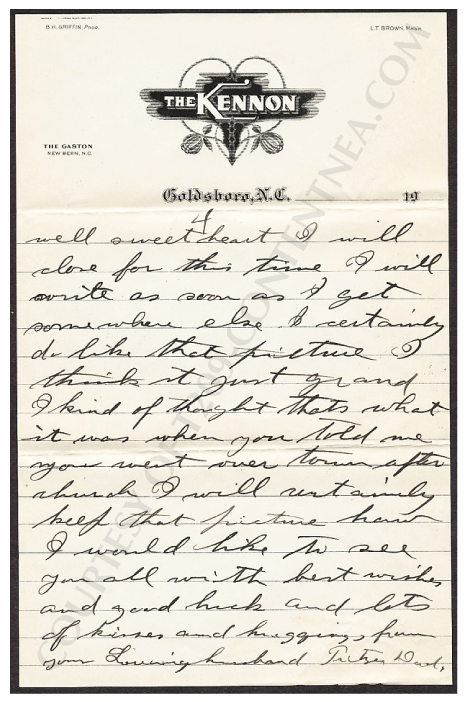 B.H. GRIFFIN, Prop.
L.T. BROWN, Mgr.
THE KENNON
THE GASTON
NEW BERN, N.C.
Goldsboro, N.C. 19
4
well sweet heart I will
close for this time I will
write as soon as I get
somewhere else I certainly
do like that picture I
think it just grand
I kind of thought thats what
it was when you told me
you went over town after
church I will certainly
keep that picture how
I would like to see
you all with best wishes
and good luck and lots
of kisses and huggings from
your Loveing husband Dad,
COURTESY OF CONTENTNEA.COM